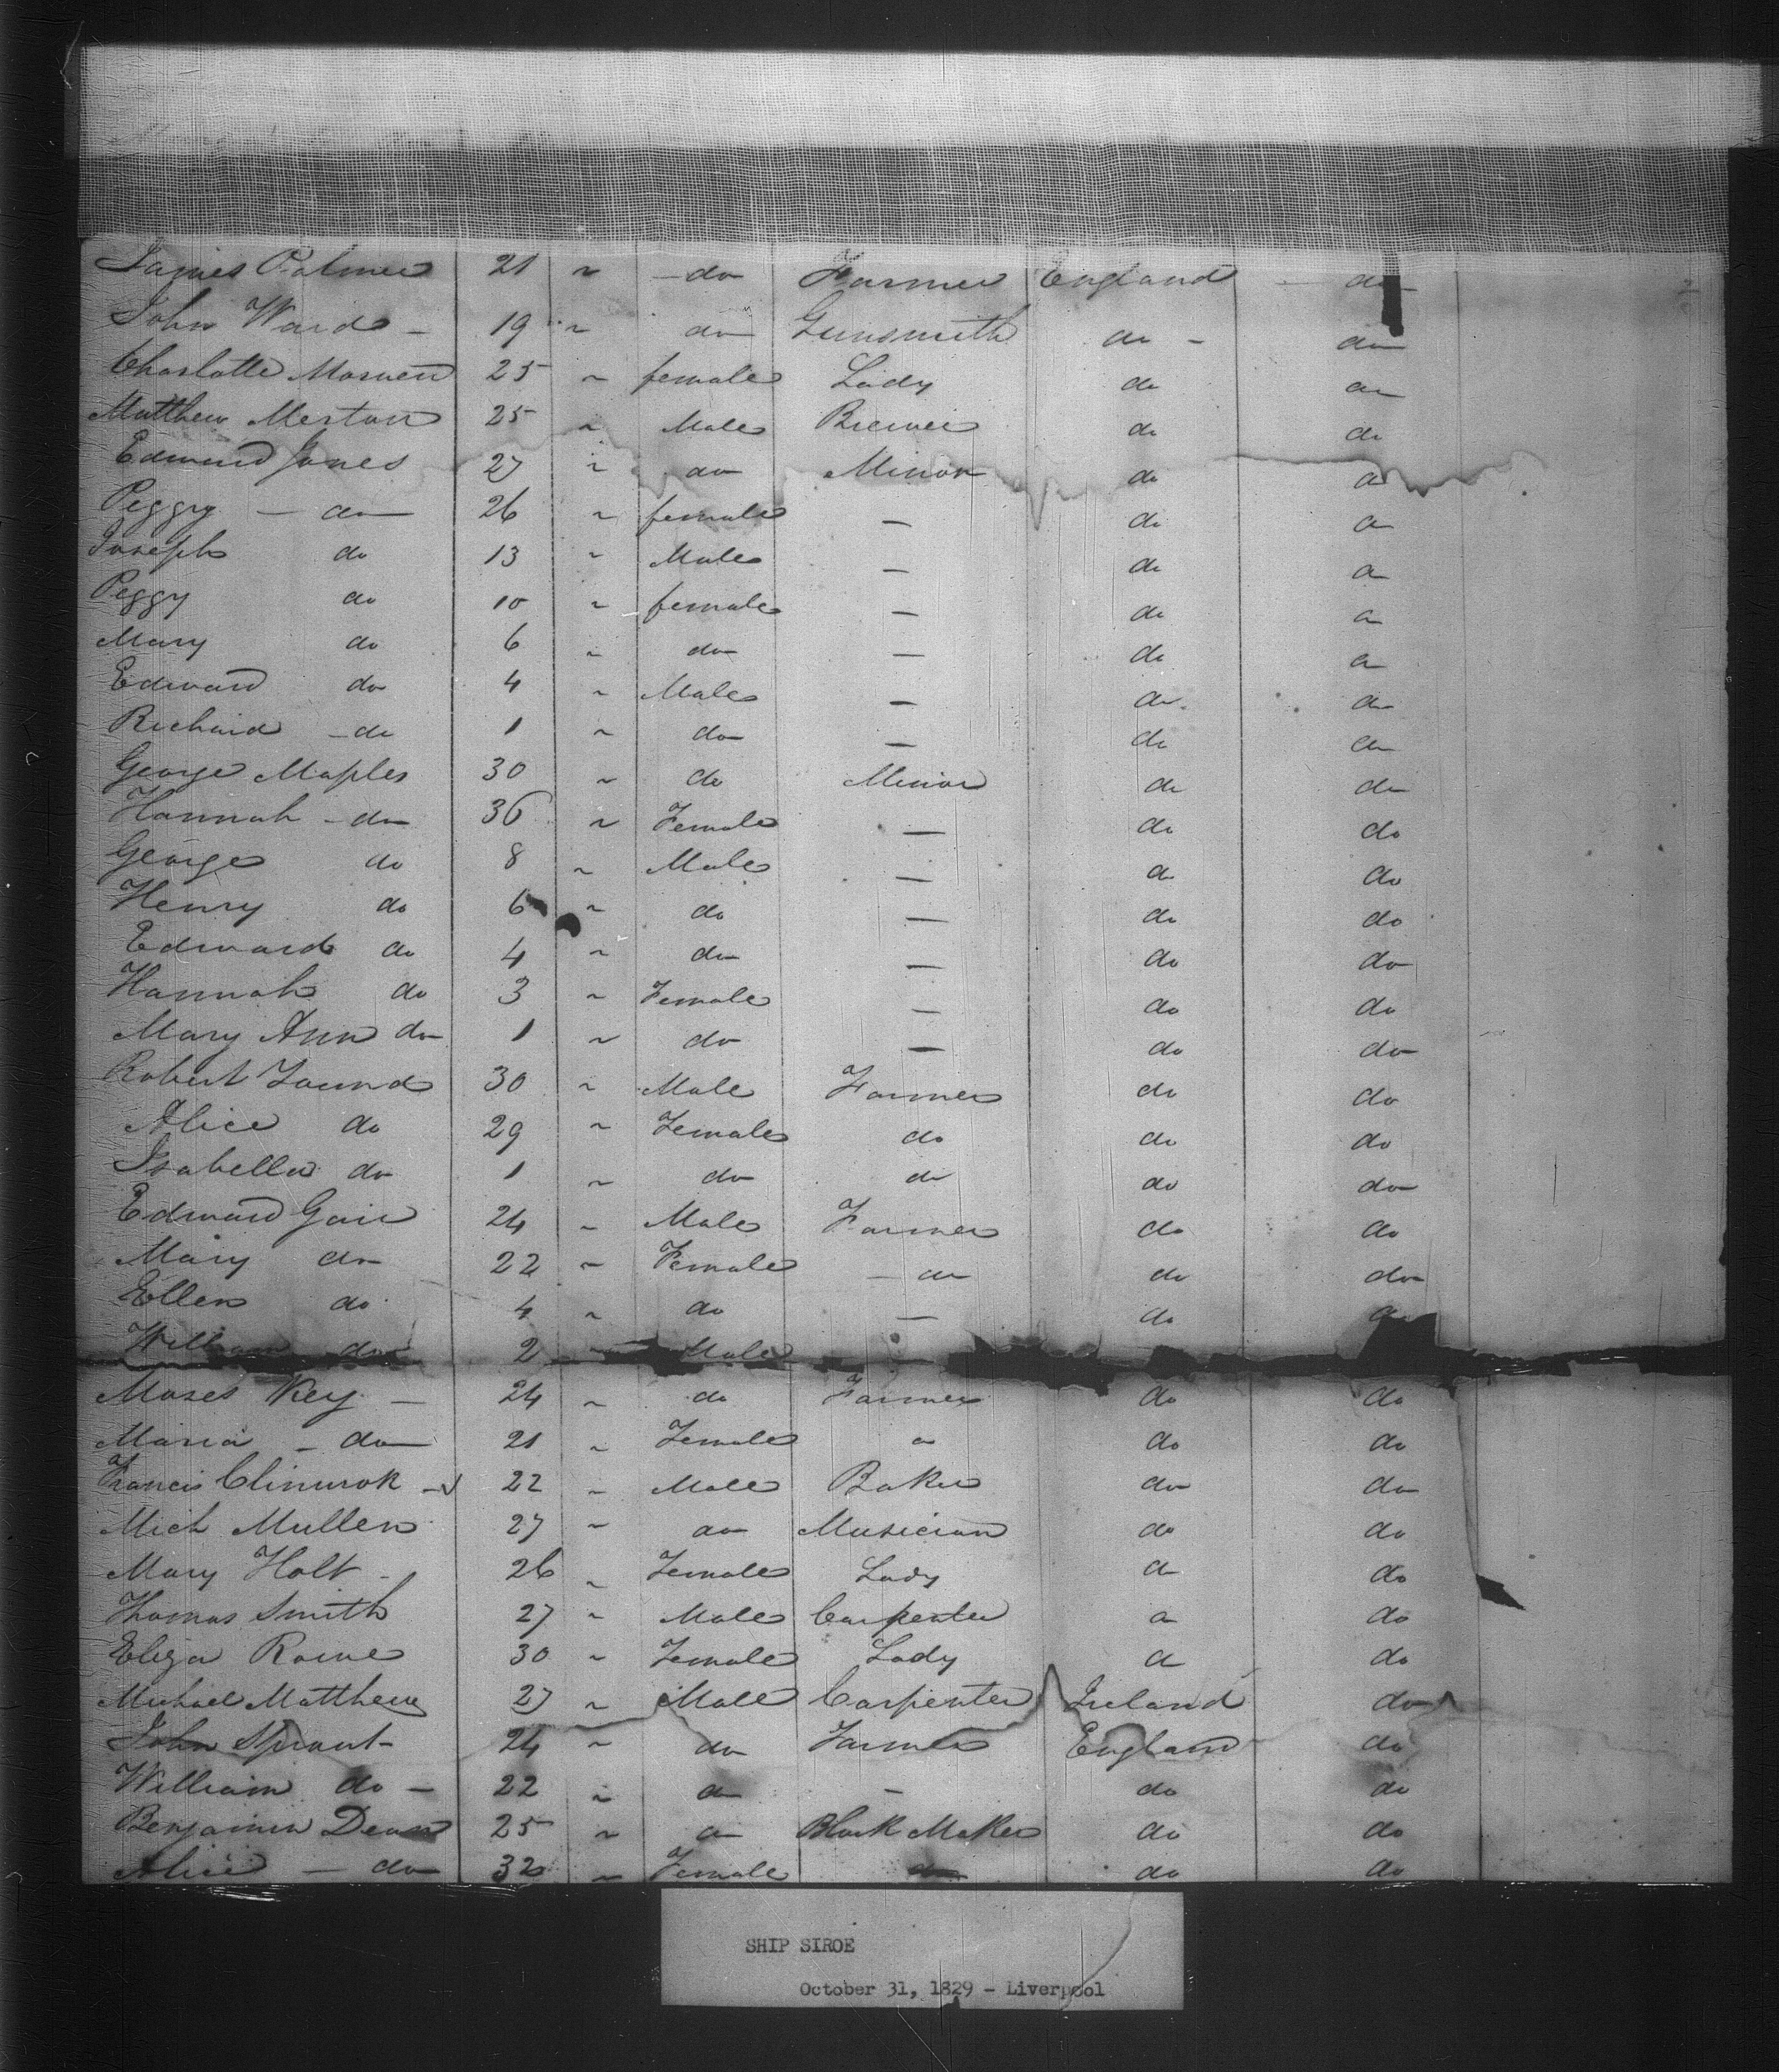 James Palmer 21 " do Farmer England do
John Ward - 19 " do Gunsmith do - do
Charlotte 25 " female Lady do do
Matthew Merton 25 " Male Brewer do do
Edward Jones 27 " do Minor do do
Peggy - do 26 " female — do do
Joseph do 13 " Male — do do
Peggy do 10 " female — do do
Mary do 6 " do — do do
Edward do 4 " Male — do do
Richard - do 1 " do — do do
George Maples 30 " do Minor do do
Hannah - do 36 " Female — do do
George do 8 " Male — do do
Henry do 6 " do — do do
Edward do 4 " do — do do
Hannah do 3 " Female — do do
Mary Ann do 1 " do — do do
Robert 30 " Male Farmer do do
Alice do 29 " Female do do do
Isabella do 1 " do do do do
Edward 24 " Male Farmer do do
Mary do 22 " Female - do do do
Ellen do 4 " do — do do
William do 2 " Male
Moses Key - 24 " do Farmer do do
Maria - do 21 " Female do do do
Francis 22 " Male Baker do do
Mich Mullen 27 " do Musician do do
Mary Holt - 26 " Female Lady do do
Thomas Smith 27 " Male Carpenter do do
Eliza Rowe 30 " Female Lady do do
Michael Matthews 27 " Male Carpenter Ireland do
John Sprout - 24 " do Farmer England do
William do - 22 " do — do do
Benjamin Dean 25 " do Block Maker do do
Alice - do 32 " Female do do do
SHIP SIROE
October 31, 1829 - Liverpool